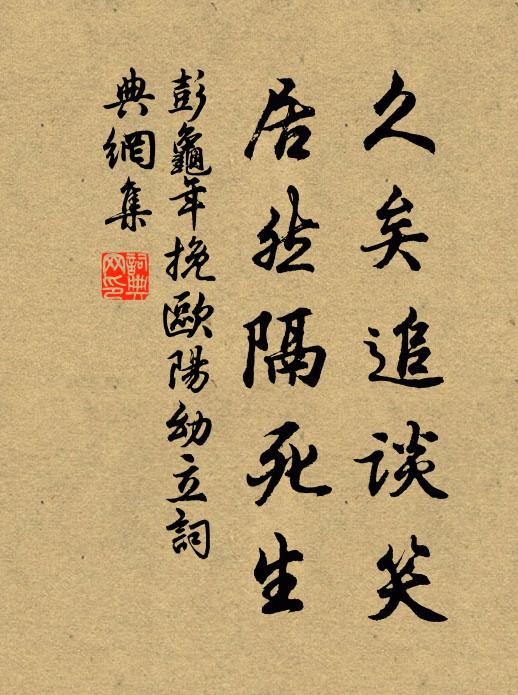 久矣追談笑
居然隔死生
彭龜年挽歐陽幼立詞
典網集
詞典
网印